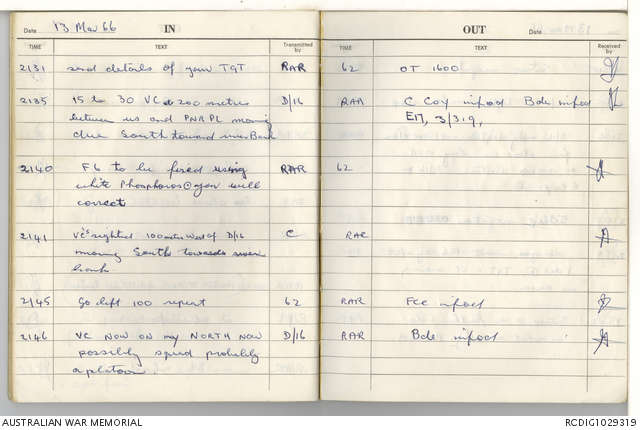 Date 13 Mar 66 IN
TIME TEXT Transmitted by
2131 send details of your TGT RAR
2135 15 to 30 VC at 200 metres D/16
between us and PNR PL moving
due South toward river Bank
2140 F6 to be fired using RAR
white Phosphoros you will
correct
2141 VC's sighted 100 metres West of D/16 C
moving South towards river
bank
2145 Go left 100 repeat 62
2146 VC NOW ON my NORTH NOW D/16
possibly squad probably
a platoon
OUT Date
TIME TEXT Received by
62 OT 1600
RAR C Coy infod Bde infod
3/319,
62
RAR
RAR infod
RAR Bde infod
AUSTRALIAN WAR MEMORIAL RCDIG1029319